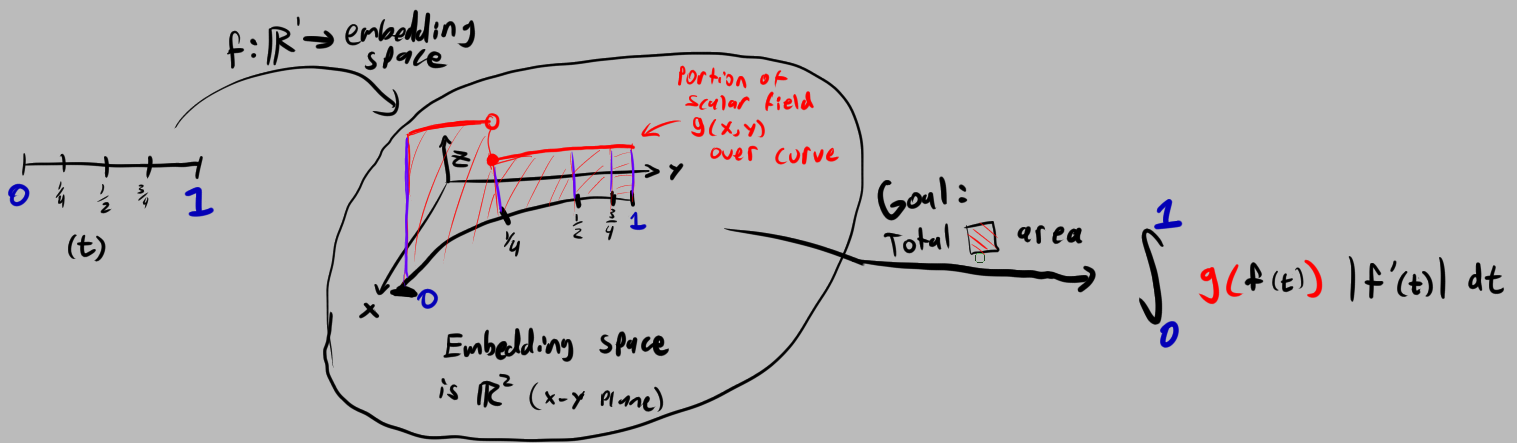 f: ℝ¹ → embedding
space
0 ¼ ½ ¾ 1
(t)
Portion of
scalar field
g(x,y)
over curve
Z
Y
X
0
¼
½
¾
1
Embedding space
is ℝ² (x-y plane)
Goal:
Total area
∫₀¹ g(f(t)) |f'(t)| dt